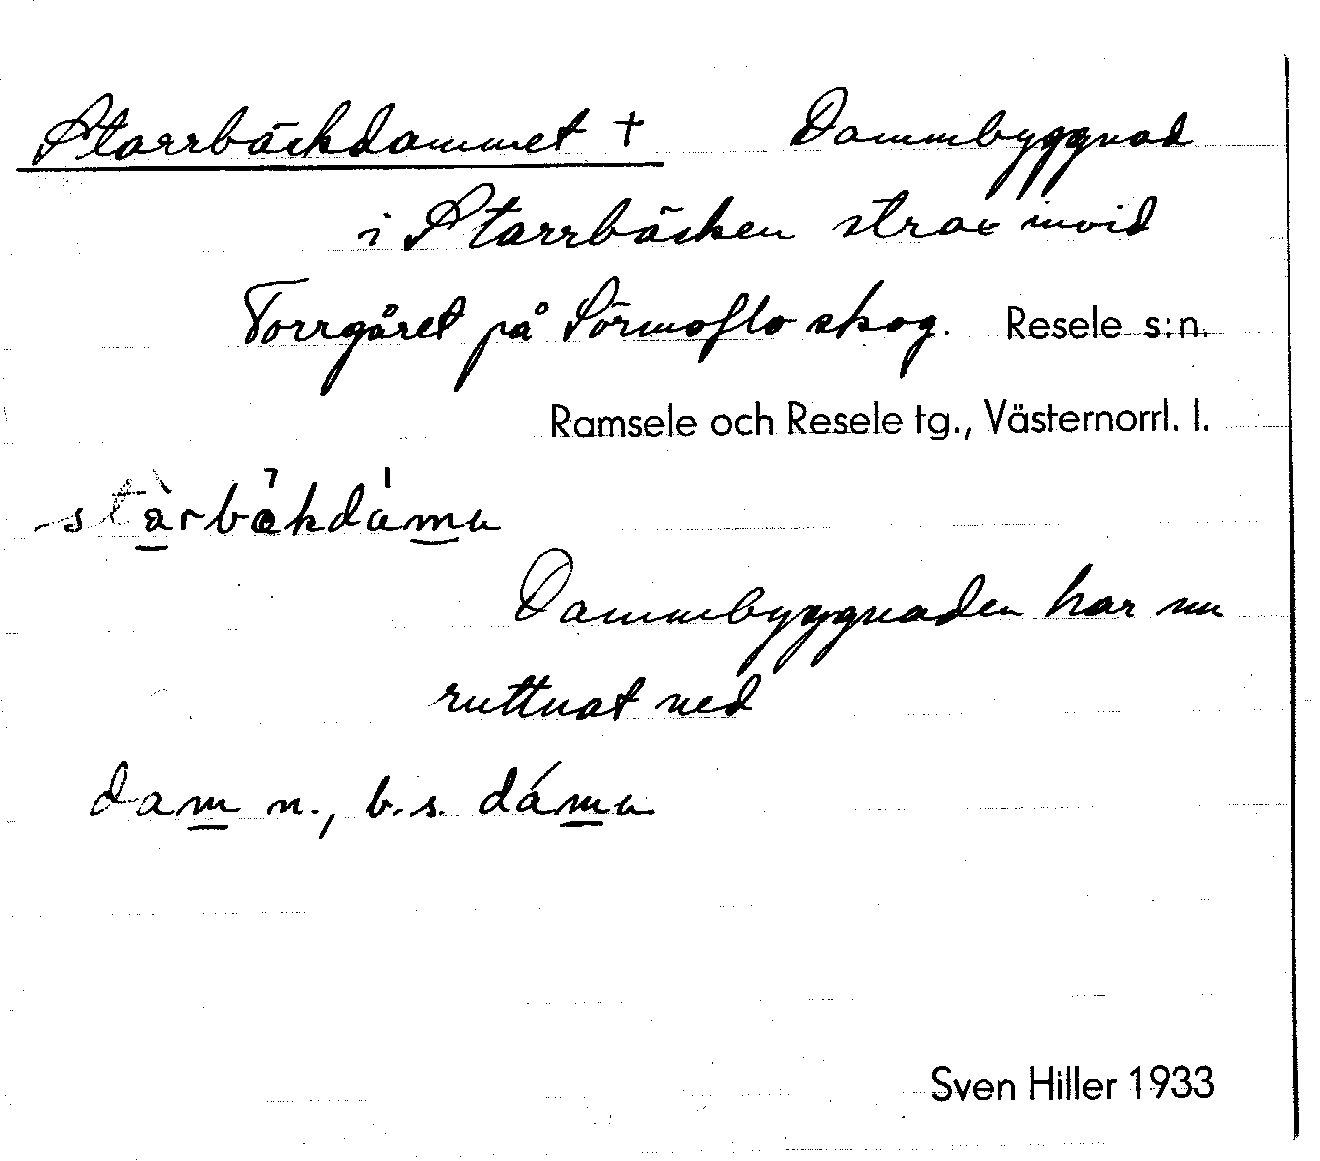 Starrbäckdammet † Dammbyggnad
i Starrbäcken strax invid
Torrgåret på Sörmoflo skog. Resele s:n.
Ramsele och Resele tg., Västernorrl. l.
Dammbyggnaden har nu
ruttnat ned
dam n., b.s. dáma
Sven Hiller 1933